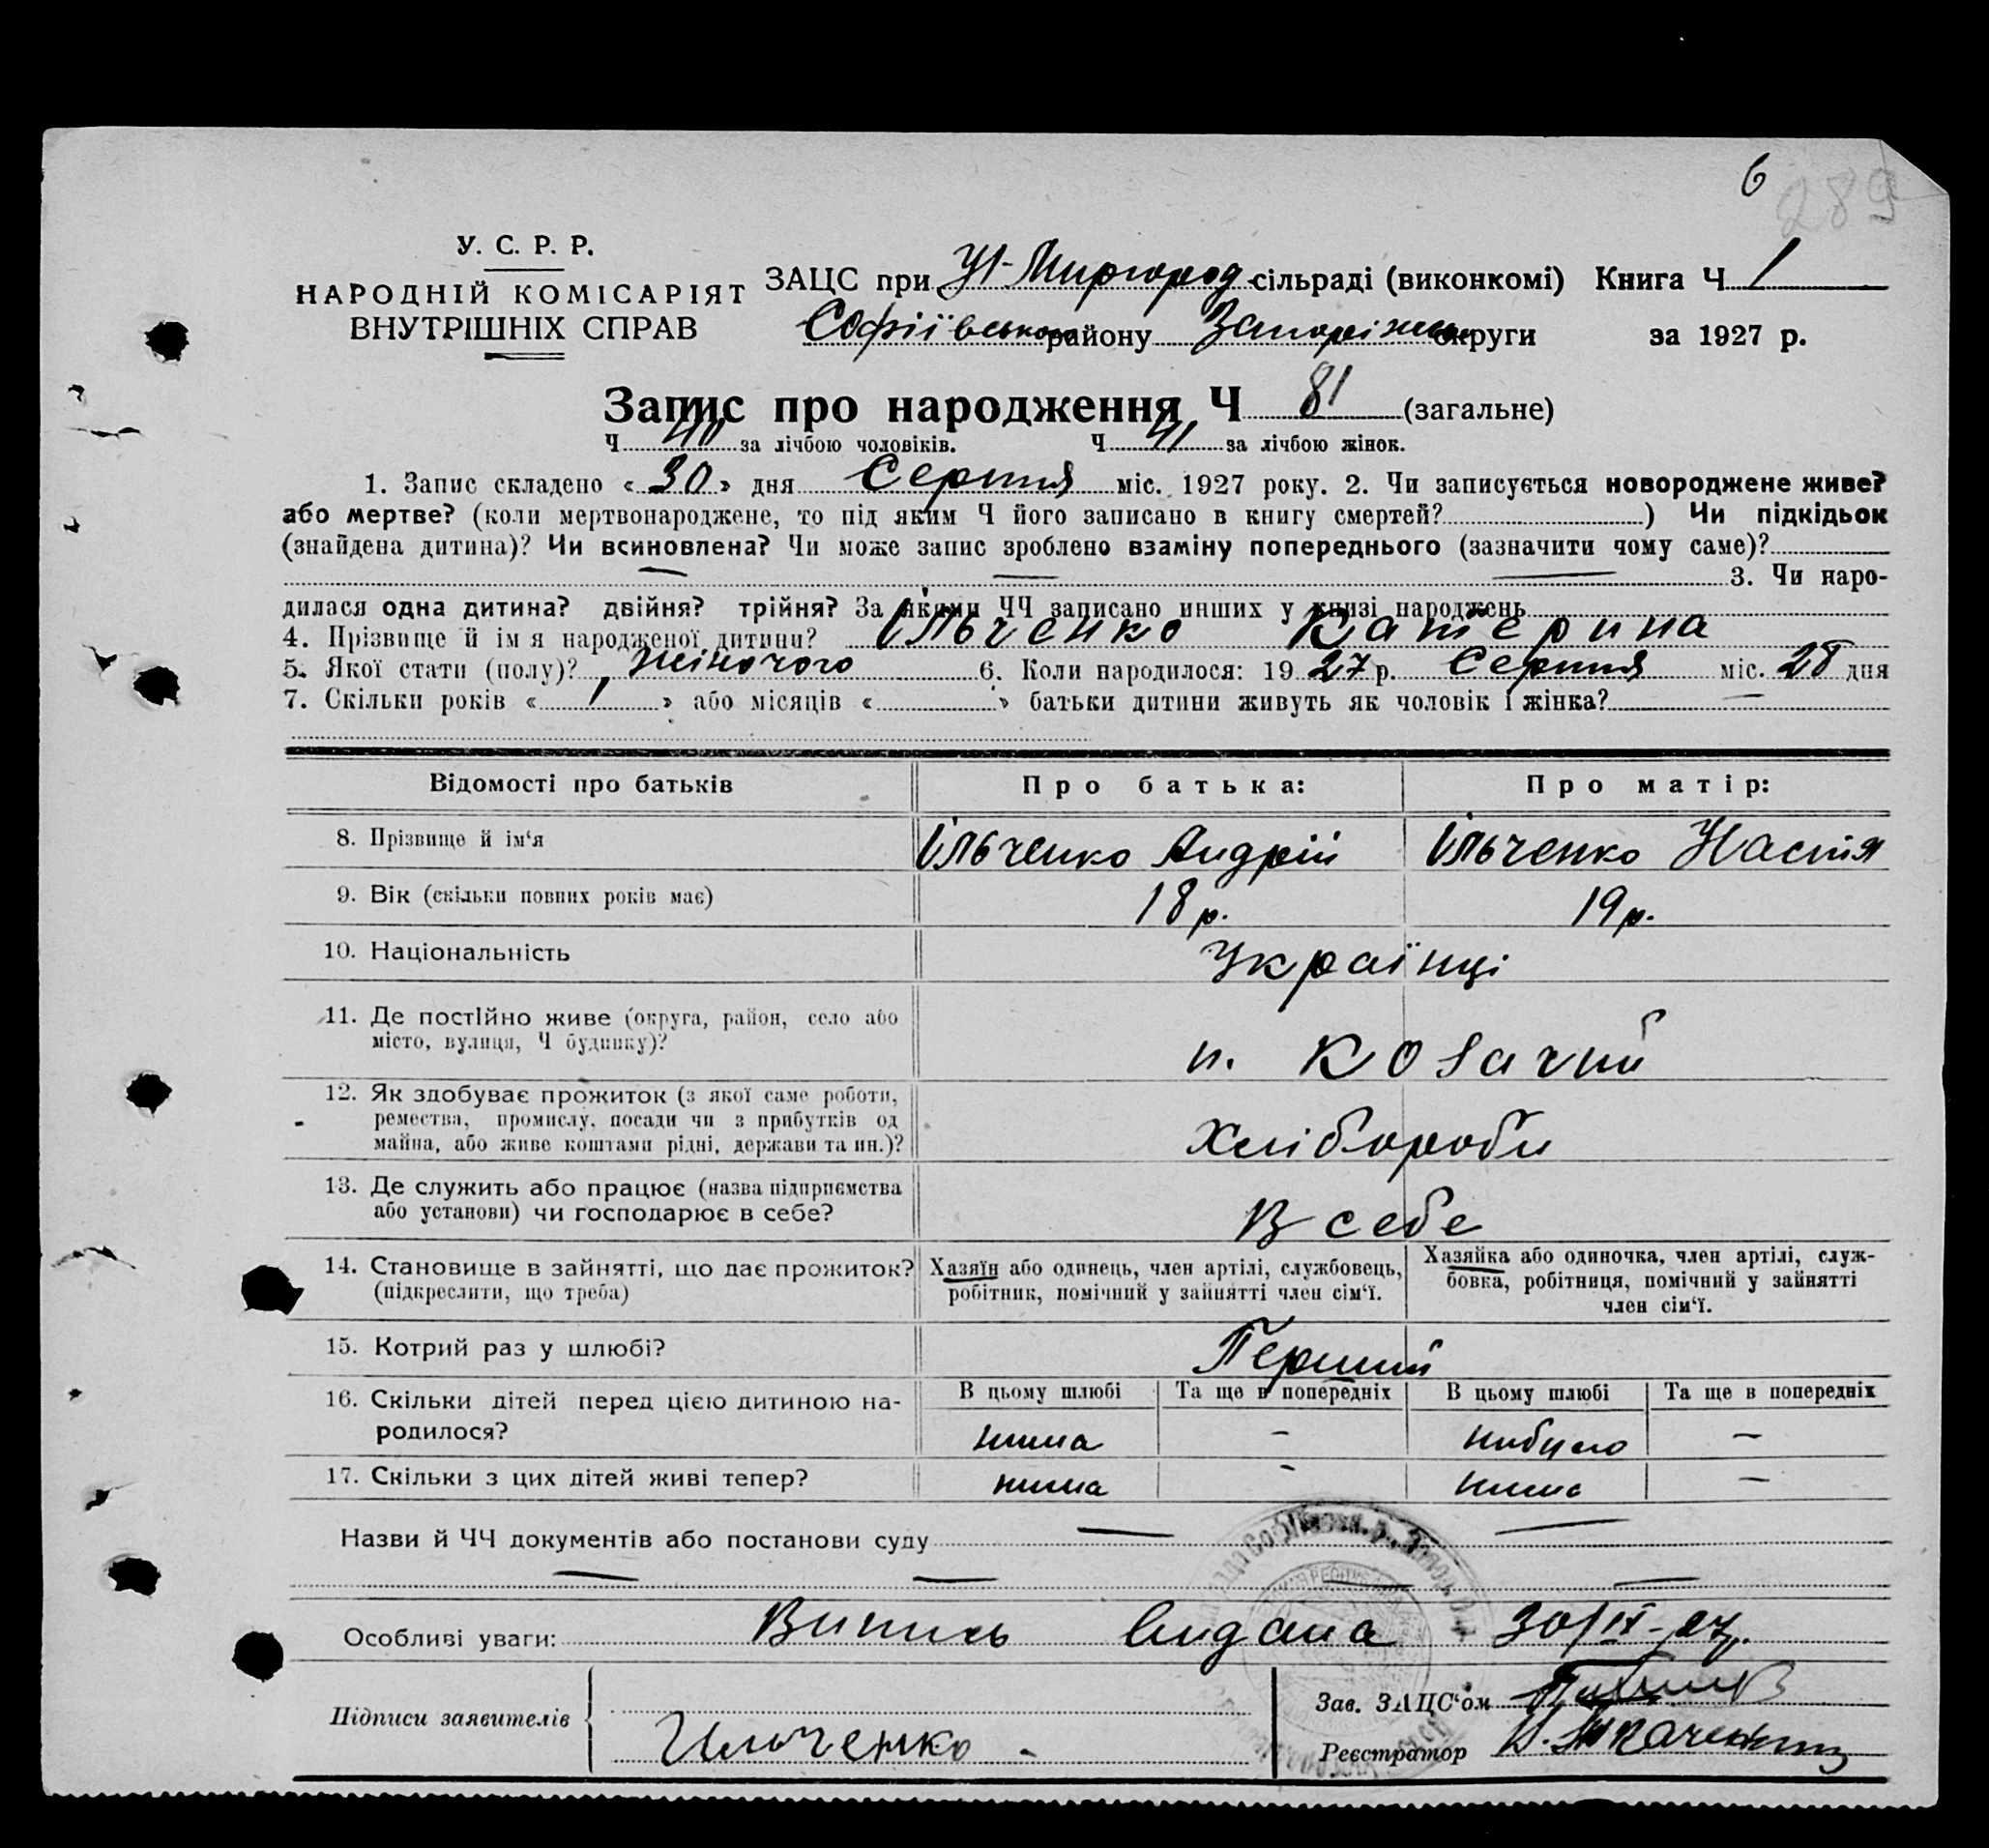 6
289
У. С. Р. Р.
НАРОДНІЙ КОМІСАРІЯТ
ВНУТРІШНІХ СПРАВ
ЗАЦС при Миргород сільраді (виконкомі) Книга Ч 1
Софіївського району Запоріжськ округи за 1927 р.
Запис про народження Ч 81 (загальне)
Ч 40 за лічбою чоловіків. Ч 41 за лічбою жінок.
1. Запис складено « 30 » дня Серпня міс. 1927 року. 2. Чи записується новороджене живе?
або мертве? (коли мертвонароджене, то під яким Ч його записано в книгу смертей? ) Чи підкідьок
(знайдена дитина)? Чи всиновлена? Чи може запис зроблено взаміну попереднього (зазначити чому саме)?
— — — 3. Чи наро-
дилася одна дитина? двійня? трійня? За якими ЧЧ записано инших у книзі народжень
4. Прізвище й ім я народженої дитини? Ільченко Катерина
5. Якої стати (полу)? жіночого 6. Коли народилося: 19 27 р. Серпня міс. 28 дня
7. Скільки років « 1 » або місяців « » батьки дитини живуть як чоловік і жінка? —
Відомості про батьків Про батька: Про матір:
8. Прізвище й ім‘я Ільченко Андрій Ільченко Настя
9. Вік (скільки повних років має) 18 р. 19 р.
10. Національність Українці
11. Де постійно живе (округа, район, село або
місто, вулиця, Ч будинку)? п. Козачий
12. Як здобуває прожиток (з якої саме роботи,
ремества, промислу, посади чи з прибутків од
майна, або живе коштами рідні, держави та ин.)? Хлібороби
13. Де служить або працює (назва підприємства
або установи) чи господарює в себе? В себе
14. Становище в зайнятті, що дає прожиток?
(підкреслити, що треба)
Хазяїн або одинець, член артілі, службовець,
робітник, помічний у зайнятті член сім‘ї.
Хазяйка або одиночка, член артілі, служ-
бовка, робітниця, помічний у зайнятті
член сім‘ї.
15. Котрий раз у шлюбі? Перший
В цьому шлюбі Та ще в попередніх В цьому шлюбі Та ще в попередніх
16. Скільки дітей перед цією дитиною на-
родилося? нима — нибуло —
17. Скільки з цих дітей живі тепер? нима - нима —
Назви й ЧЧ документів або постанови суду — —
— — —
Особливі уваги: Випись видана 30/IX-27р.
Підписи заявителів Ильченко -
Зав. ЗАЦС‘ом
Реєстратор